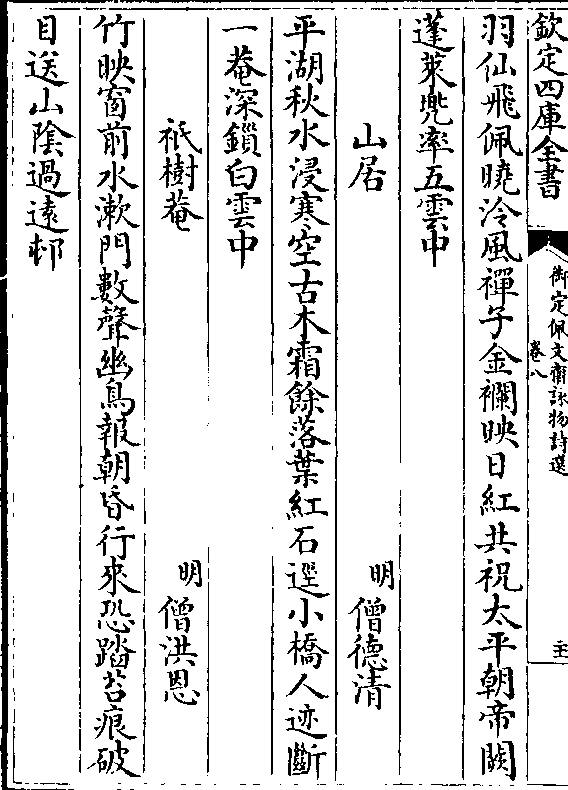 欽定四庫全書
御定佩文齋詠物詩選
卷八
羽仙飛佩曉泠風禪子金襴映日紅共祝太平朝帝闕
蓬萊兜率五雲中
山居
明
僧德清
平湖秋水浸寒空古木霜餘落葉紅石逕小橋人迹斷
一菴深鎖白雲中
祇樹菴
明
僧洪恩
竹映窗前水漱門數聲幽鳥報朝昏行來恐踏苔痕破
目送山陰過遠邨